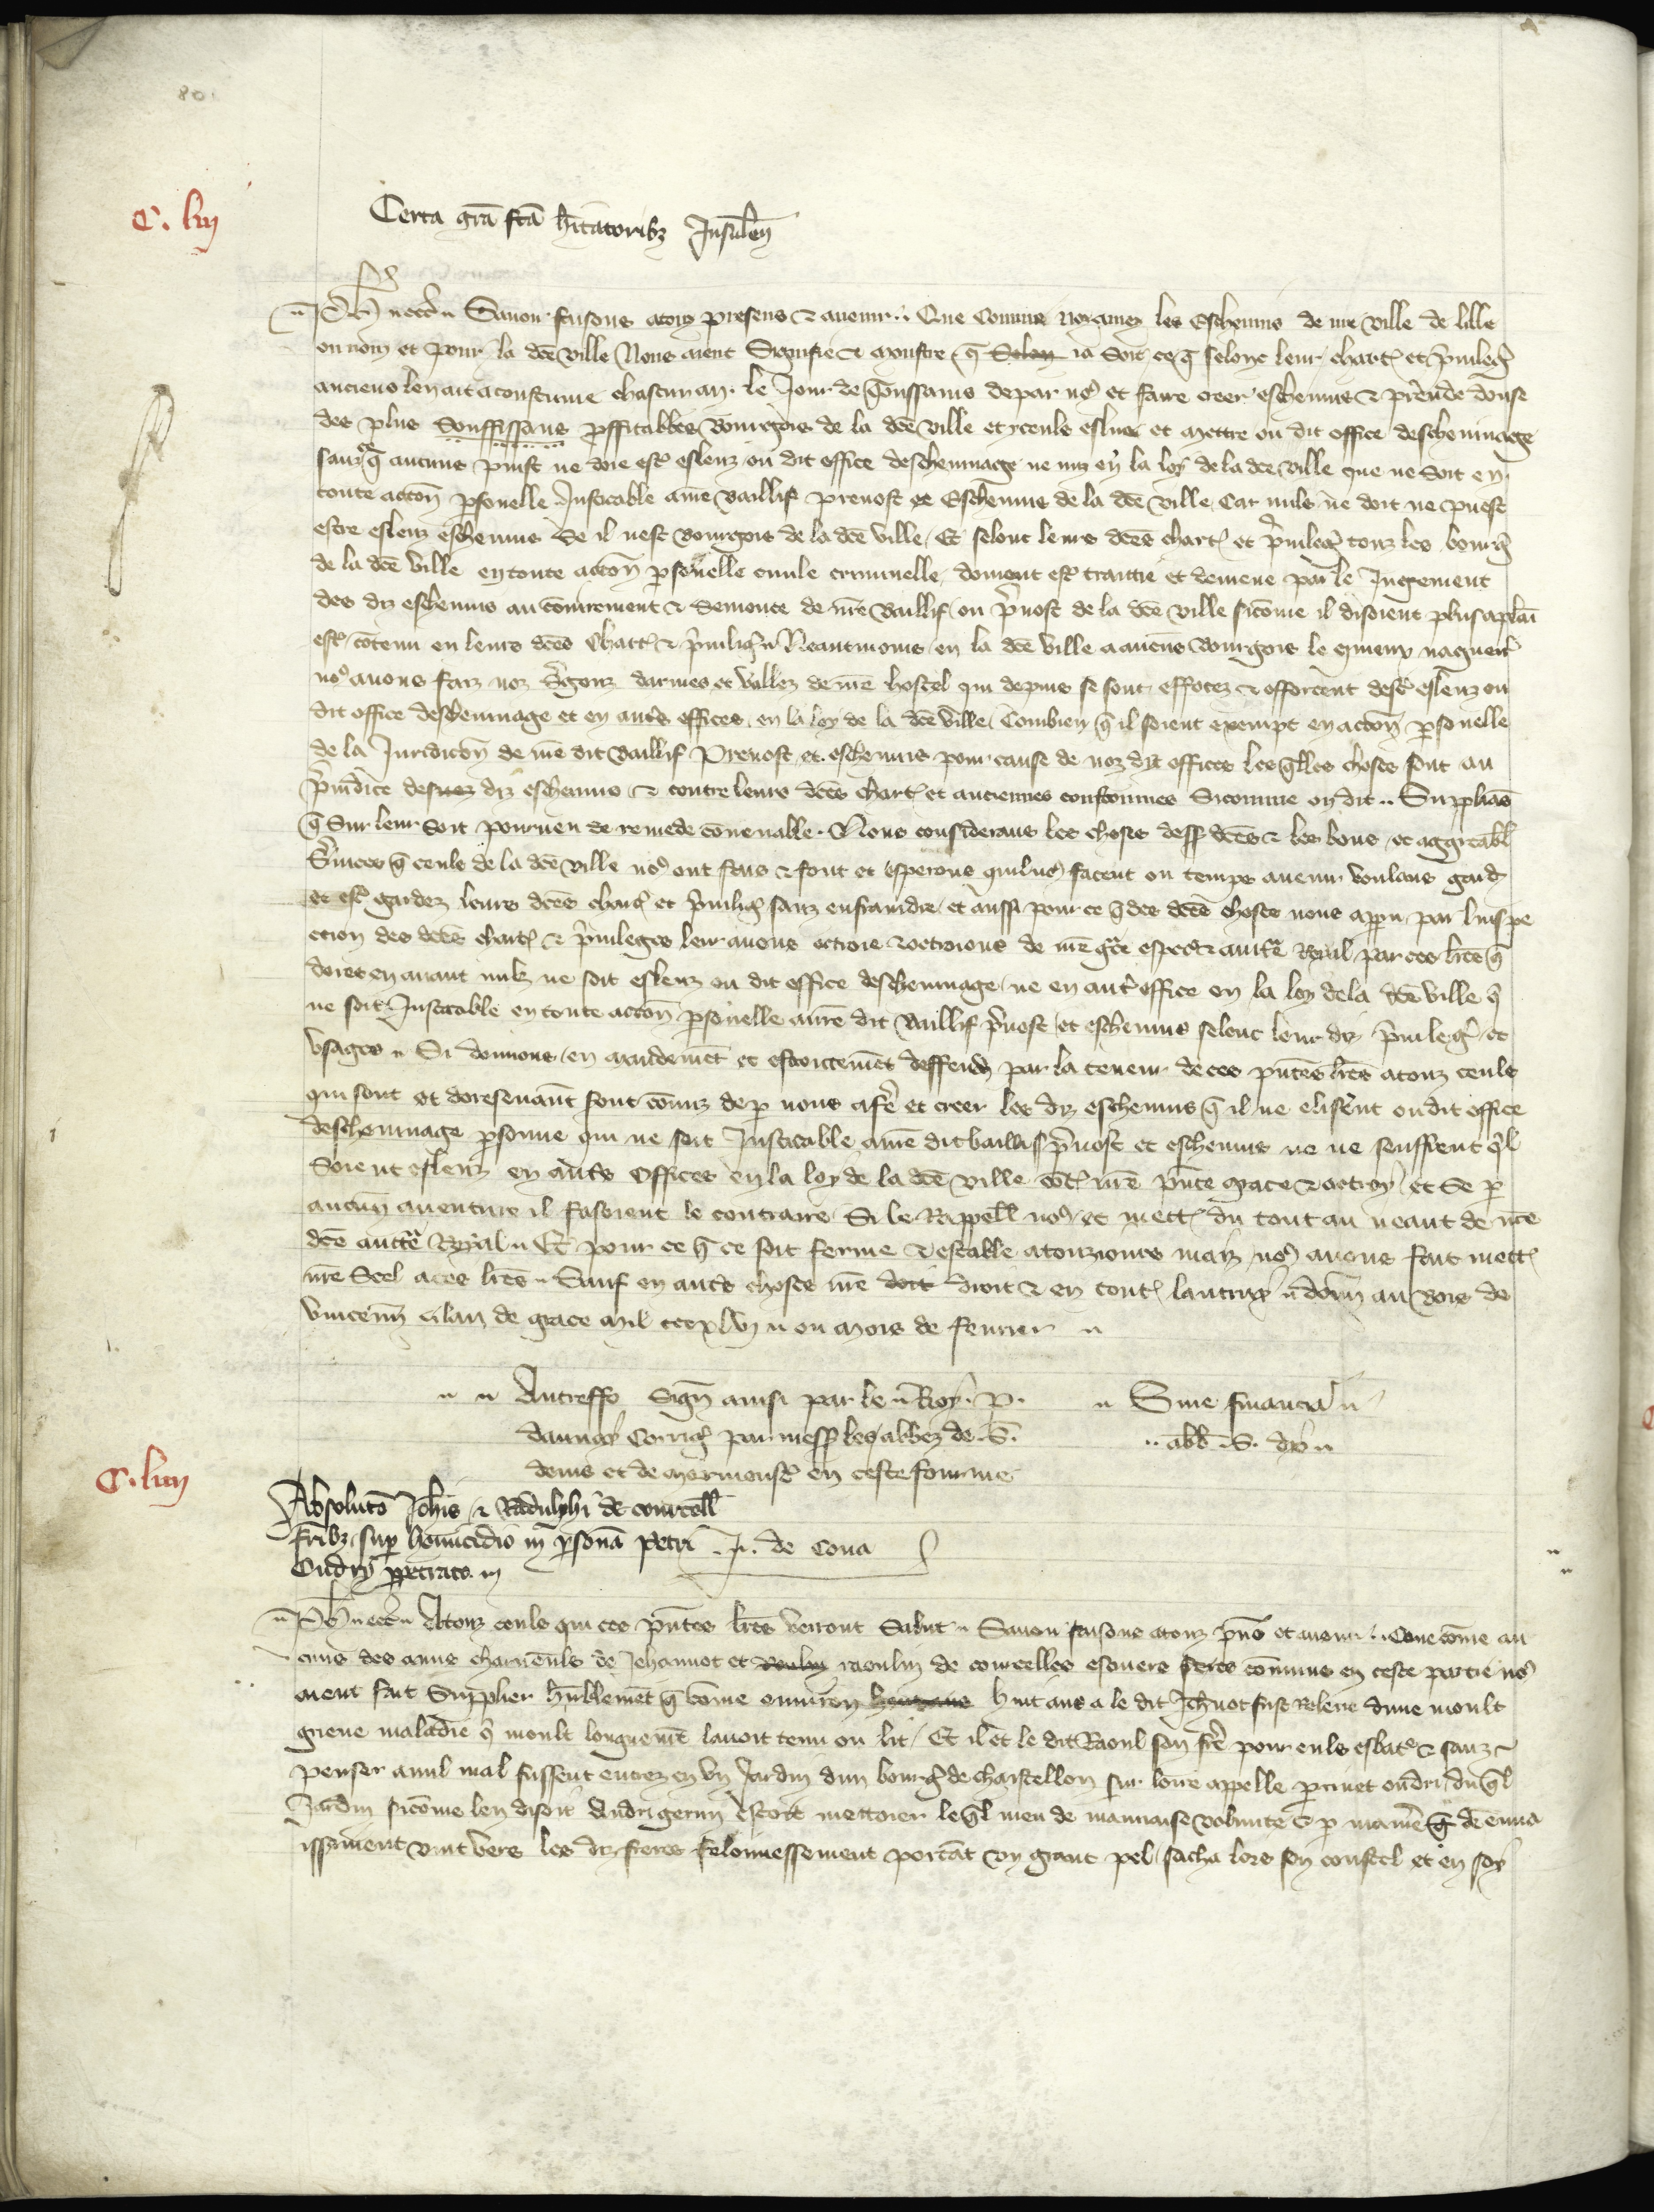 80.
C. liij
Certa grā fcā hītatoribꝫ Insulen̄
Ph̄ etc̄ Savoir faisons a touz presens et avenir Que comme noz amez les Eschevins de nre ville de Lille
ou nom et pour la dcē ville Nous aient Signifie et monstre q̄ ia soit ce q̄ selonc leur chart et privileḡ
anciens len ait acoustume chascun an le Jour de Toussains de par nꝰ et faire creer eschevins et prēndre douse
des plus souffissans proffitables Bourgois de la dcē ville et yceuls eslire et mettre ou dit office deschevinage
sanz q̄ aucuns puist ne doie estr̄ esleuz ou dit office deschevinage ne mis en la loy de la dcē ville que ne soit en
toute accōn psonelle Justicable a nrē Baillif prevost et Eschevins de la dcē ville Car nuls ne doit ne puest
estre esleuz eschevins Se il nest bourgois de la dcē ville Et selonc leurs dcēs chart et privileḡ touz les bourḡ
de la dcē ville en toute accōn psonelle civile criminelle doivent estr̄ traittie et demene par le Jugement
des diz eschevins au cōiurement et semonce de nrē Baillif ou p̄vost de la dcē ville sicōme il disoient plus aplaī
estr̄ cōtenu en leurs dcēs chart et privileḡ Neantmoins en la dcē ville a aucuns Bourgois le quieux naguer̄
nꝰ avons faiz noz S̄gens darmes et vallez de nrē hostel qui depuis se sont effotez et offorcent destr̄ esleuz ou
dit office deschevinage et en autr̄s offices en la loy de la dcē ville Combien q̄ il soient exempt en accōn psonelle
de la Juridicōn de nrē dit Baillif Prevost et eschevins pour cause de noz diz offices les q̄lles choses sont au
p̄iudice des diz eschevins et contre leurs dcēs chart et anciennes coustumes Sicomme on dit Suppliās
q̄ sur leur soit pourveu de remede cōvenable Nous considerans les choses dess dcēs et les bons et aggreabl̄
S̄vices q̄ ceuls de la dcē ville nꝰ ont faiz et font et esperons quil nꝰ facent ou temps avenir voulans gard̄
et estr̄ gardez leurs dcēs chart et privileḡ sanz enfraindre et aussi pour ce q̄ des dcēs choses nous appu par linspe
ction des dcēs chart et privileges leur avons ottroie et ottroions de nrē grce especial et autīe Royal par ces lrēs q̄
dores en avant nulz ne soit esleuz ou dit office deschevinage ne en autr̄ office en la loy de la dcē ville q̄
ne soit Justicable en toute accōn psonelle a nrē dit Baillif p̄vost et eschevins selonc leur diz privileḡ et
usages Si donnons en mandemēt et estroictemēt deffend̄ par la teneur de ces p̄ntes lrēs a touz ceuls
qui sont et doresenavant sont cōmiz de p nous a fr̄e et creer les diz eschevins q̄ il ne elisēnt ou dit office
deschevinage psonne qui ne soit Justicable a nrē dit baillif p̄vost et eschevins ne ne seuffrent q̄l
soient esleuz en autr̄s offices en la loy de la dcē ville cōt nrē p̄nte grace et ottroy et se p
aucun aventure il fasoient le contraire Si le Rappell nꝰ et mett̄ du tout au neant de nrē
dcē auctē Royal Et pour ce q̄ ce soit ferme et estable a touziours maiz nꝰ avons fait mett̄
nrē Seel a ces lrēs Sauf en autr̄s choses nrē droit et en tout lautruy donn̄ au bois de
vincenn̄ lan de grace mil cccxlvij ou mois de fevrier
Autreffo Sign̄ ainsi par le Roy. P. Sine financia
daunoy Corriḡ par mess les abbez de S. abb. S. dyō
denis et de mermoustr̄ en ceste fourme
C. liiij
Absolucō Joh̄is et Radulphi de courcell̄
fr̄ibꝫ sup homicidio in psonā petri J. de Cona
Ondri ppetrato
Ph̄ etc̄ A touz ceuls qui ces p̄ntes lrēs verront Salut Savoir faisons a touz p̄ns et avenir Que cōme au
cuns des amis charnēuls de Jehannot et raoulin de courcelles escuiers freres cōmuns en ceste partie nꝰ
aient fait Supplier hūblemēt q̄ cōme environ huit ans a le dit Jehānot fust Releve dune moult
grieve maladie q̄ moult longuemēt lavoit tenu ou lit Et il et le dit Raoul son frē pour euls esbatr̄ et sanz
penser a nul mal fussent entrez en un Jardin dun bourḡ de chastellon sur loire appelle perrinet ondri du q̄l
Jardin sicōme len disoit Andri germ̄ estoit mettoier leq̄l meu de mauvaise volunte et p maniē̄ de enva
issement vint vers les diz freres felonnessement portāt un grant pel sacha lors son coustel et en soy